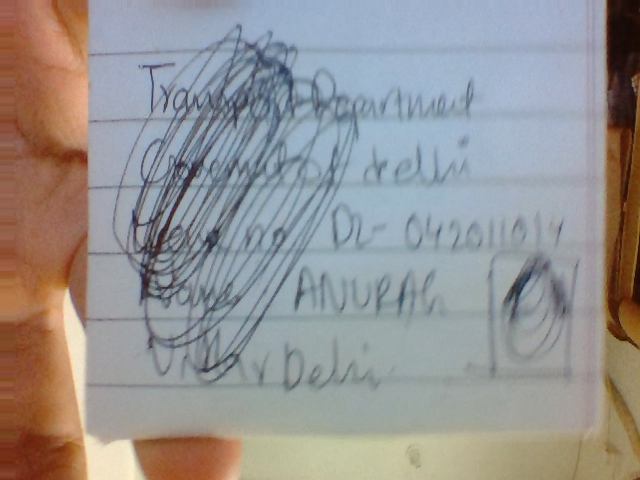 Transport Department
Goverment of delhi
no DL- 042011014
Name ANURAG
Delhi